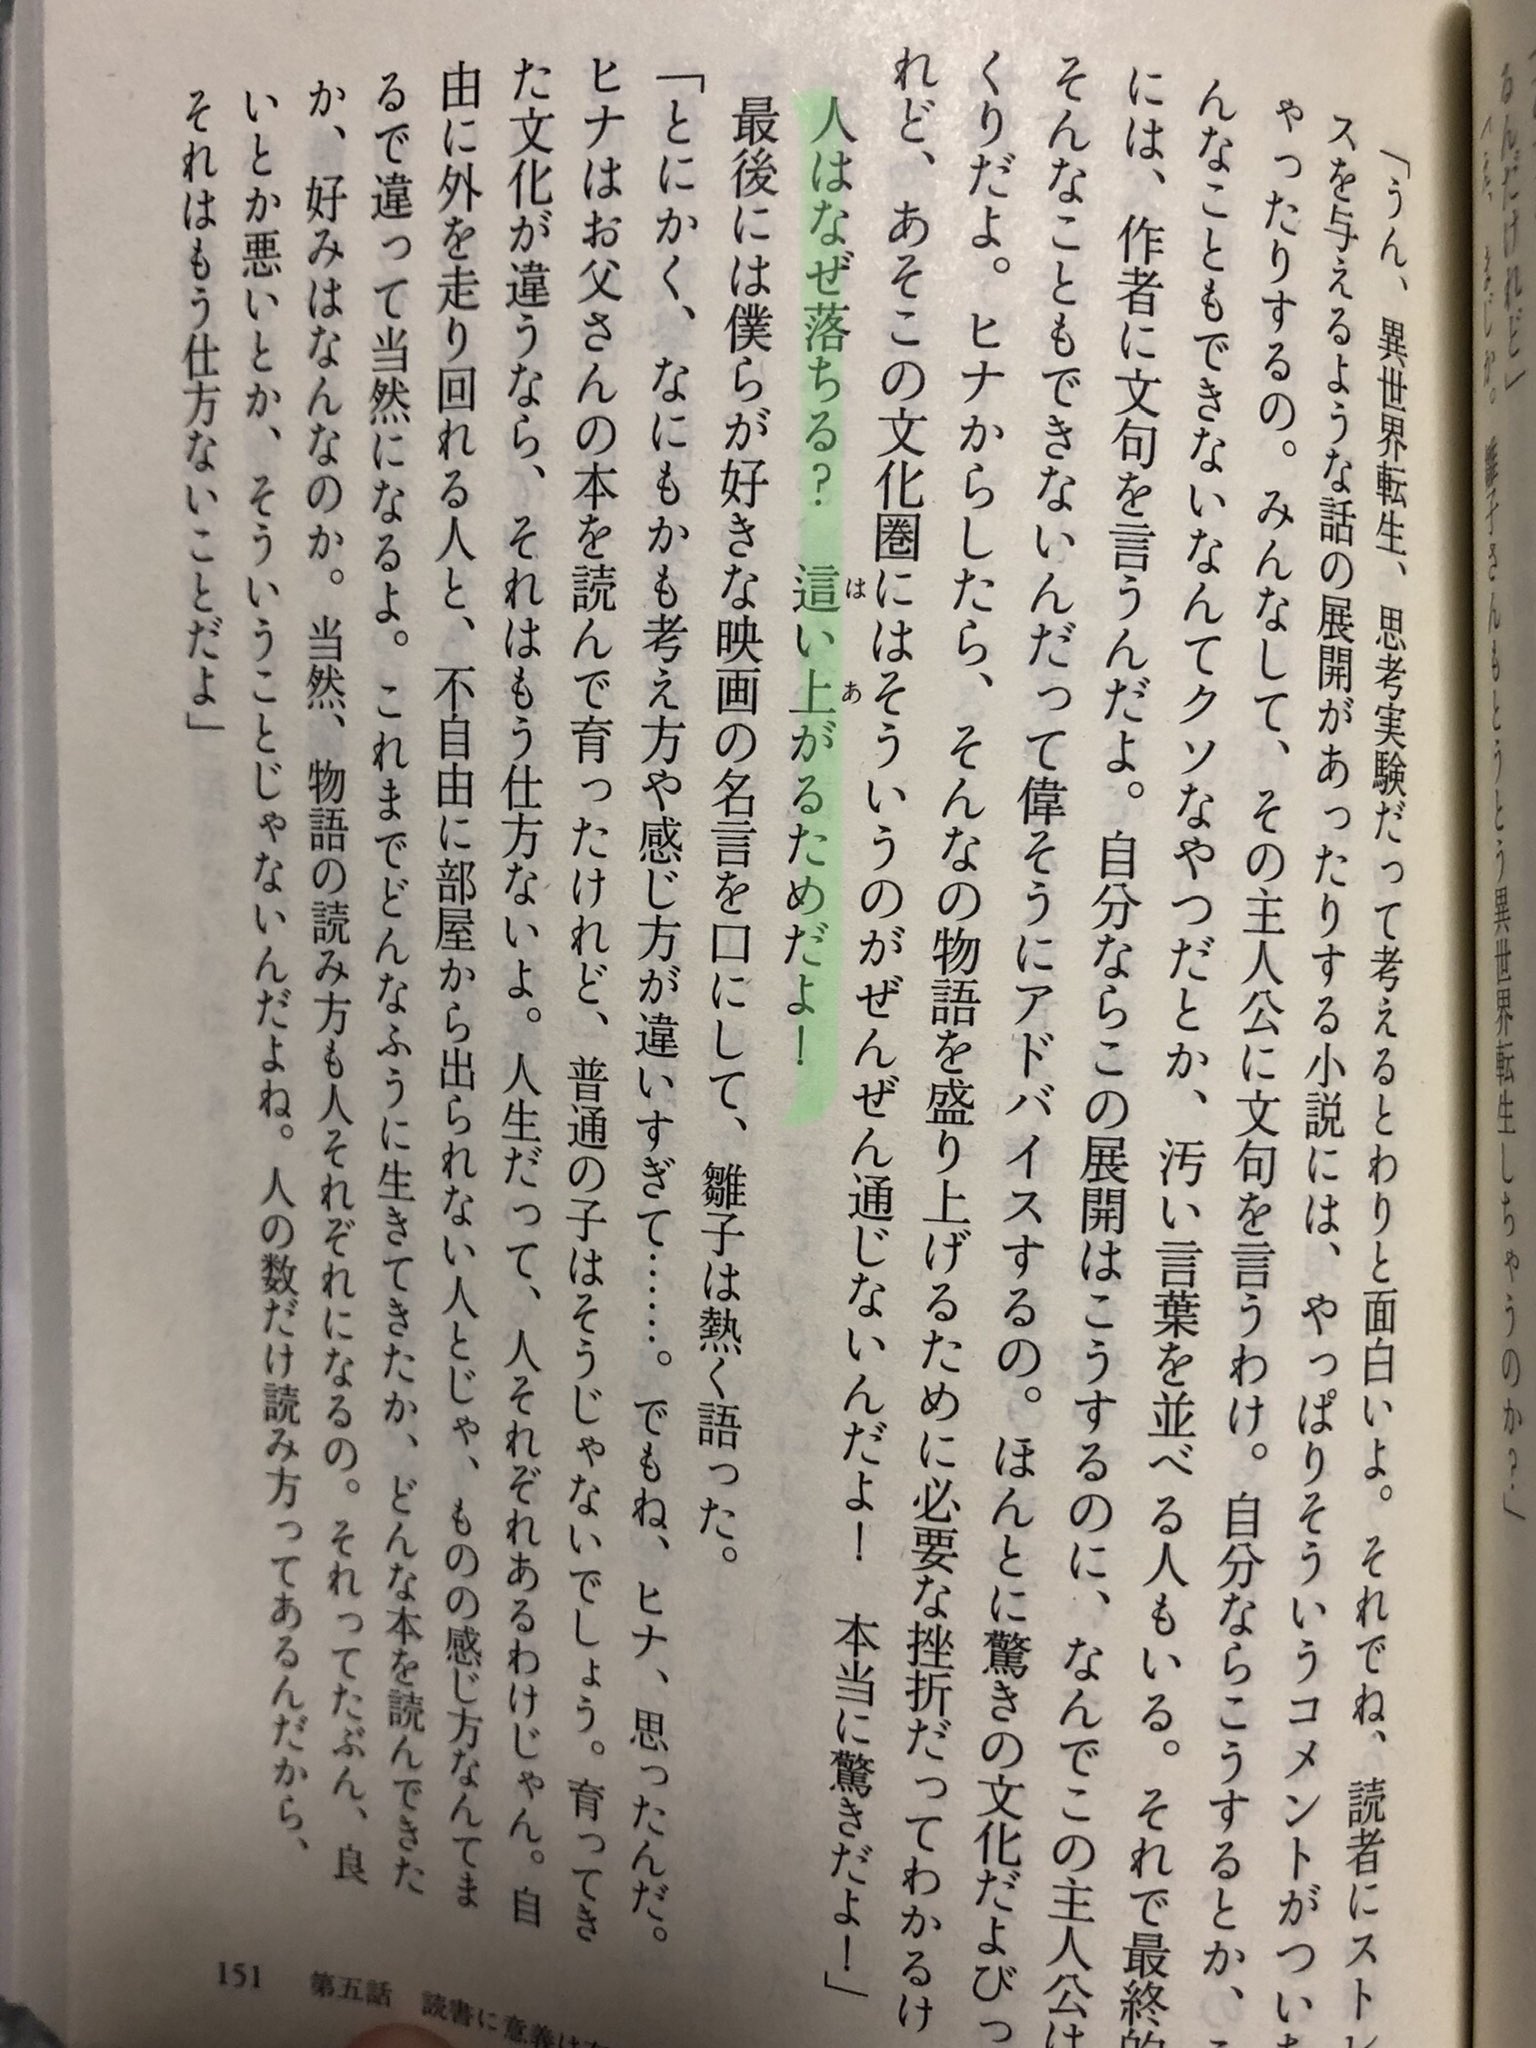 るんだけれど」
雛子さんもとうとう異世界転生しちゃうのか？」
「うん、異世界転生、思考実験だって考えるとわりと面白いよ。それでね、読者にストレ
スを与えるような話の展開があったりする小説には、やっぱりそういうコメントがついち
ゃったりするの。みんなして、その主人公に文句を言うわけ。自分ならこうするとか、こ
んなこともできないなんてクソなやつだとか、汚い言葉を並べる人もいる。それで最終的
には、作者に文句を言うんだよ。自分ならこの展開はこうするのに、なんでこの主人公は
そんなこともできないんだって偉そうにアドバイスするの。ほんとに驚きの文化だよびっ
くりだよ。ヒナからしたら、そんなの物語を盛り上げるために必要な挫折だってわかるけ
れど、あそこの文化圏にはそういうのがぜんぜん通じないんだよ！　本当に驚きだよ！」
人はなぜ落ちる？　這い上がるためだよ！
最後には僕らが好きな映画の名言を口にして、雛子は熱く語った。
「とにかく、なにもかも考え方や感じ方が違いすぎて……。でもね、ヒナ、思ったんだ。
ヒナはお父さんの本を読んで育ったけれど、普通の子はそうじゃないでしょう。育ってき
た文化が違うなら、それはもう仕方ないよ。人生だって、人それぞれあるわけじゃん。自
由に外を走り回れる人と、不自由に部屋から出られない人とじゃ、ものの感じ方なんてま
るで違って当然になるよ。これまでどんなふうに生きてきたか、どんな本を読んできた
か、好みはなんなのか。当然、物語の読み方も人それぞれになるの。それってたぶん、良
いとか悪いとか、そういうことじゃないんだよね。人の数だけ読み方ってあるんだから、
それはもう仕方ないことだよ」
151　第五話　読書に意義は